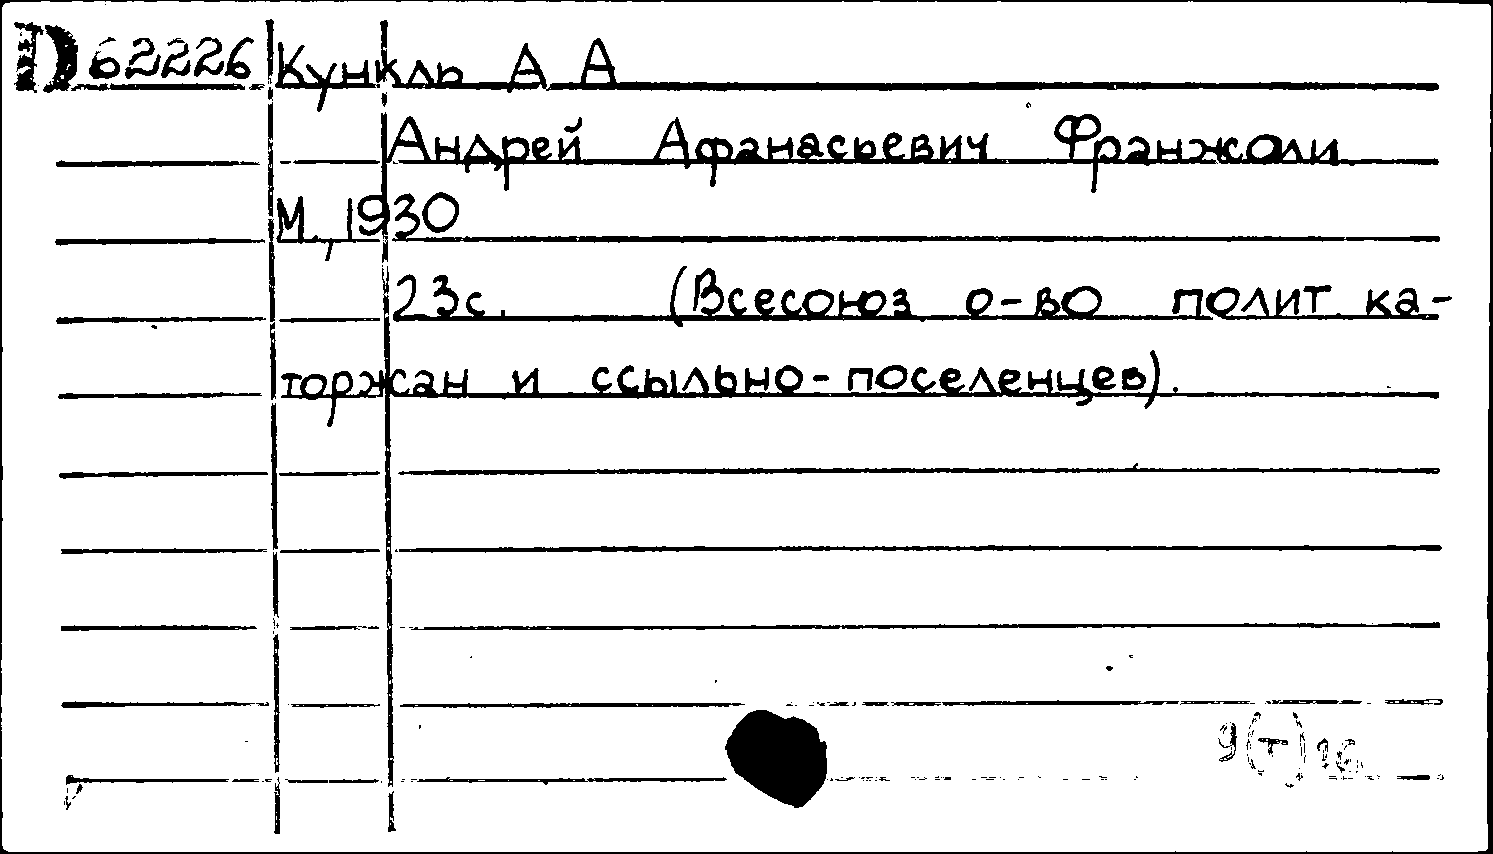 D 62226 Кункль А А
Андрей Афанасьевич Франжоли
М., 1930
23с. (Всесоюз о-во полит ка-
торжан и ссыльно-поселенцев).
9(т)16